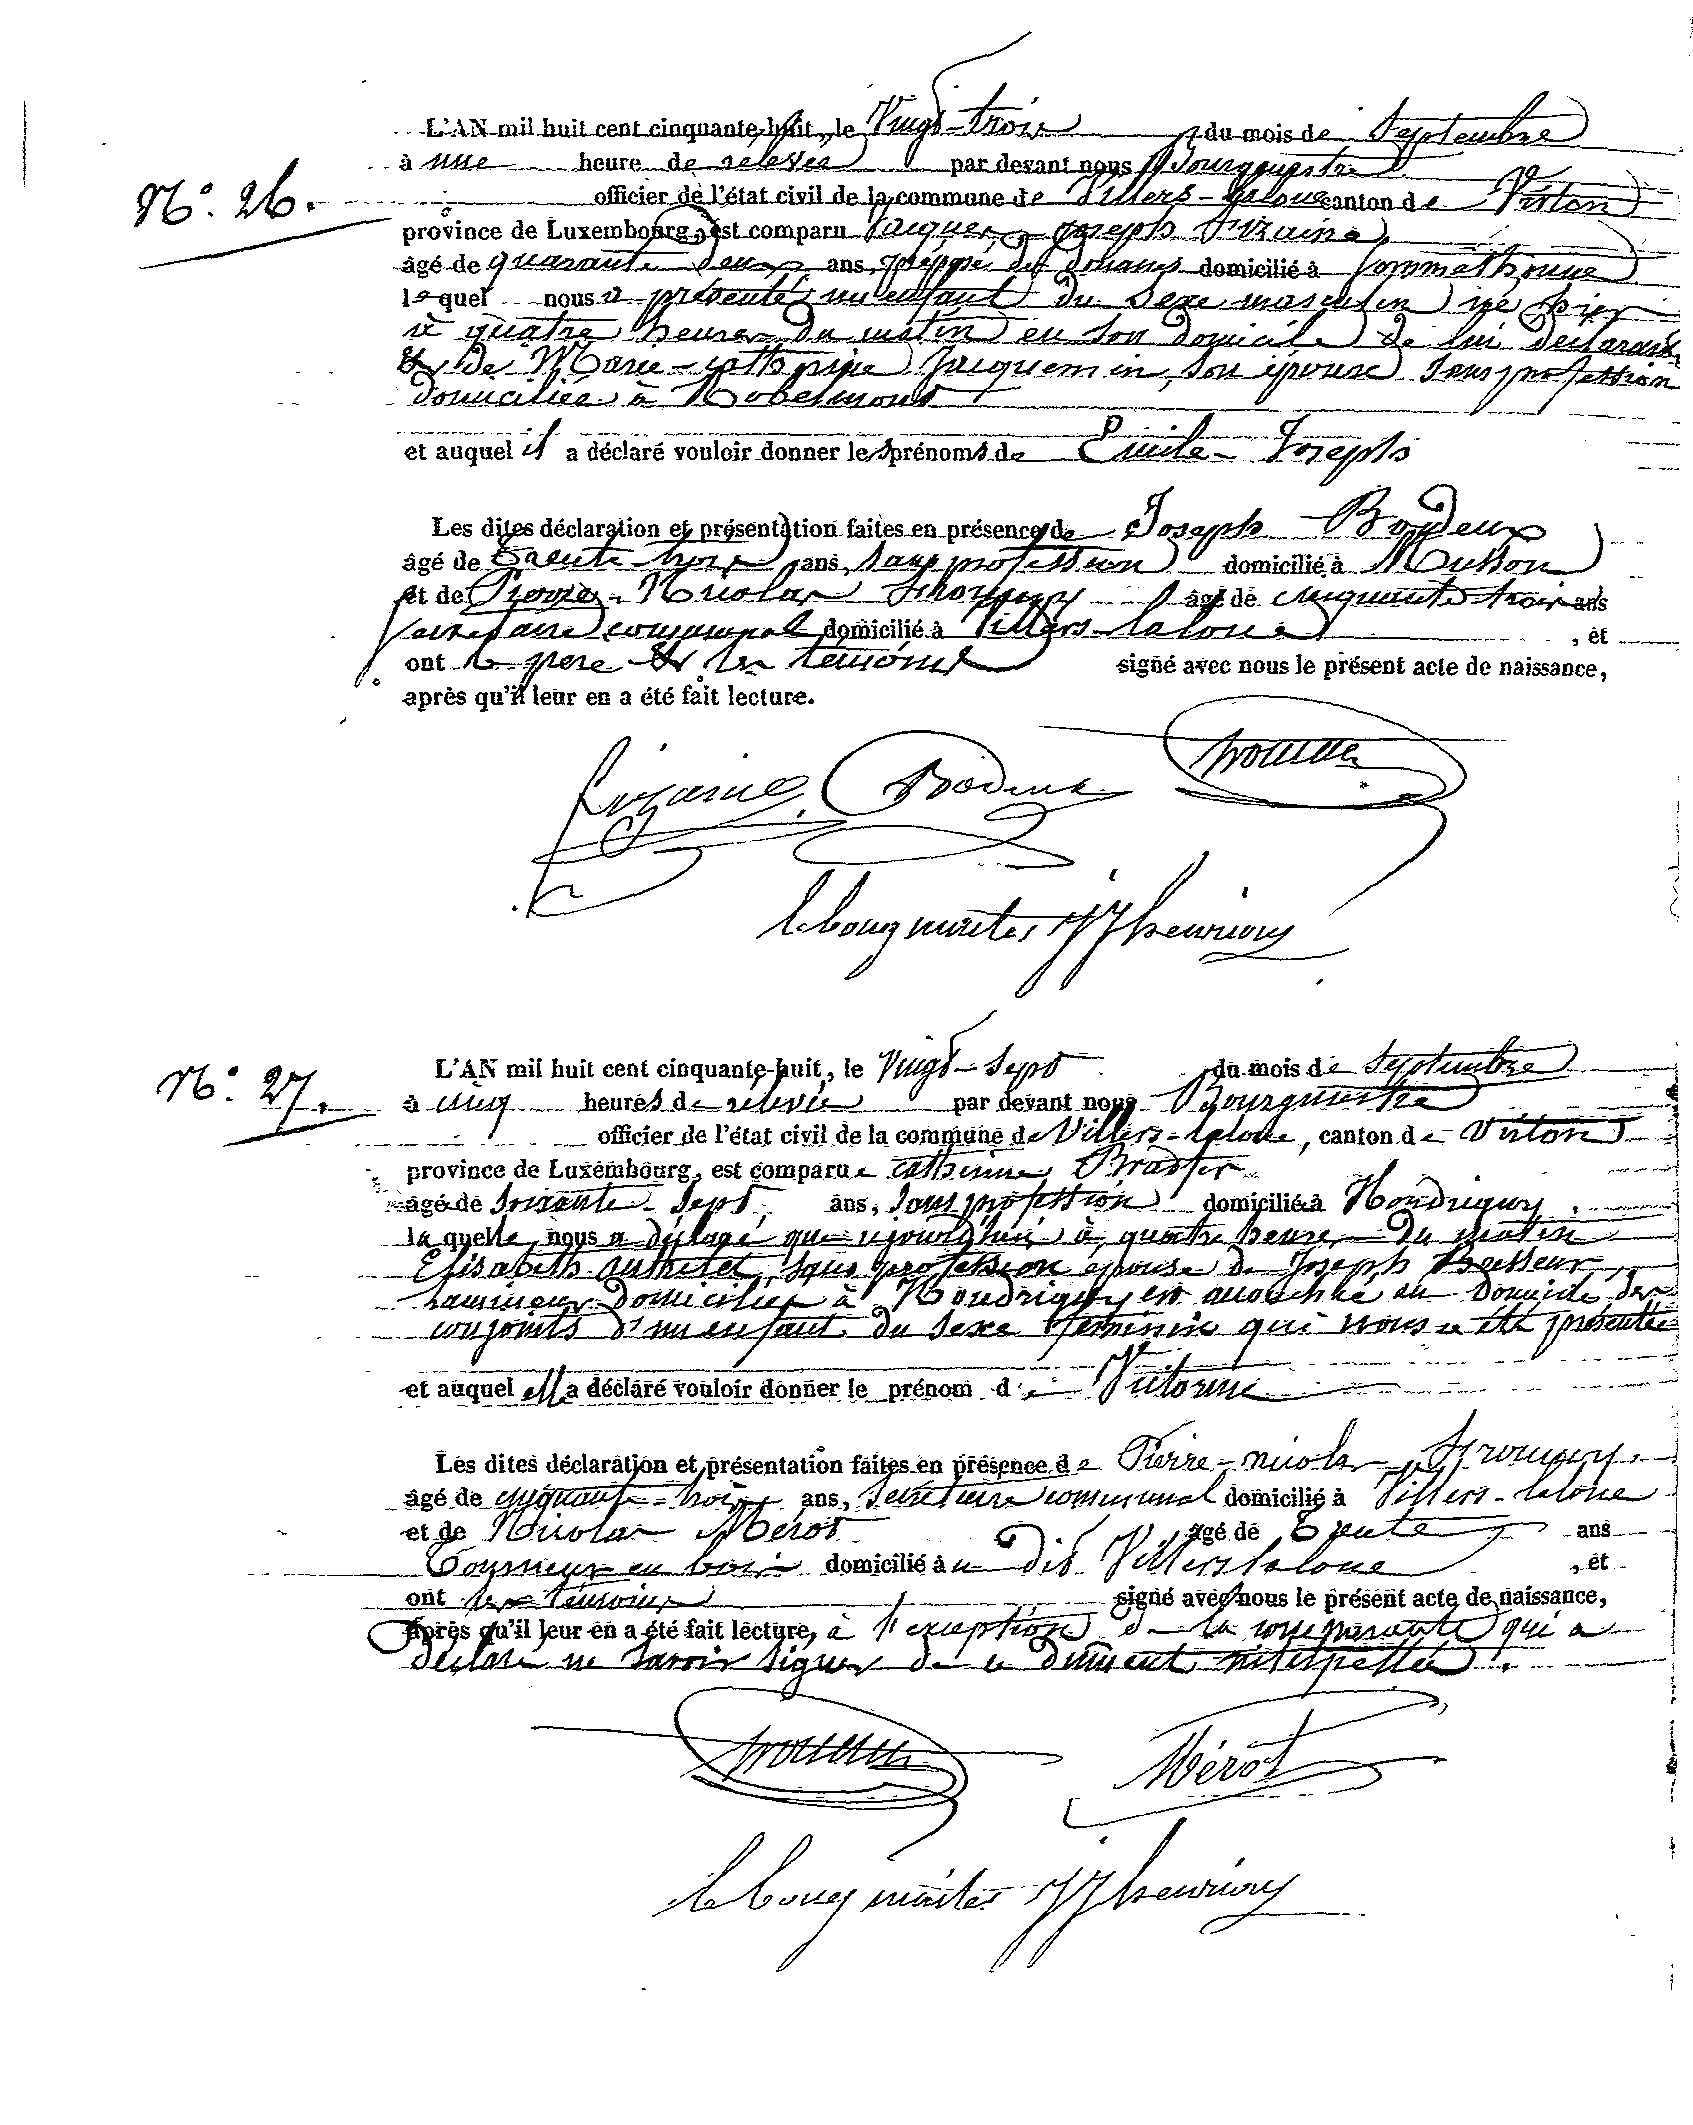 L'AN mil huit cent cinquante-huit, le Vingt-trois du mois de Septembre
à une heure de relevée par devant nous Bourgmestre
N° 26. officier de l'état civil de la commune de Villers-laloue canton de Virton
province de Luxembourg, est comparu Jacques Joseph
âgé de quarante deux ans, préposé des douanes domicilié à Sommethonne
lequel nous a présenté un enfant du sexe masculin né hier
à quatre heures du matin en son domicile de lui déclarant
& de Marie-catherine Jacquemin, son épouse sans profession
domiciliée à Robelmont
et auquel il a déclaré vouloir donner les prénoms de Emile-Joseph
Les dites déclaration et présentation faites en présence de Joseph Bodeux
âgé de trente-trois ans, sans profession domicilié à Musson
et de Pierre-Nicolas âgé de cinquante trois ans
secrétaire communal domicilié à Villers-laloue , et
ont le père & les témoins signé avec nous le présent acte de naissance,
après qu'il leur en a été fait lecture.
Bodeux
le bourgmestre JJ henriony
N° 27. L'AN mil huit cent cinquante-huit, le vingt-sept du mois de Septembre
à cinq heures de relevée par devant nous Bourgmestre
officier de l'état civil de la commune de Villers-laloue, canton de Virton
province de Luxembourg, est comparue catherine
âgé de soixante-sept ans, sans profession domiciliée à Houdrigny
laquelle nous a déclaré que aujourd'hui à quatre heures du matin
Elisabeth sans profession épouse de Joseph
domiciliés à Houdrigny est accouchée au domicile des
conjoints d'un enfant du sexe féminin qui nous a été présenté
et auquel elle a déclaré vouloir donner le prénom de Victorine
Les dites déclaration et présentation faites en présence de Pierre-nicolas
âgé de cinquante-trois ans, secrétaire communal domicilié à Villers-laloue
et de Nicolas Mérot âgé de trente ans
Tourneur en bois domicilié à u dit Villerslaloue , et
ont les témoins signé avec nous le présent acte de naissance,
après qu'il leur en a été fait lecture, à l'exception de la comparante qui a
déclaré ne savoir signer de ce dûment interpellée.
Mérot
le bourgmestre JJ henriony